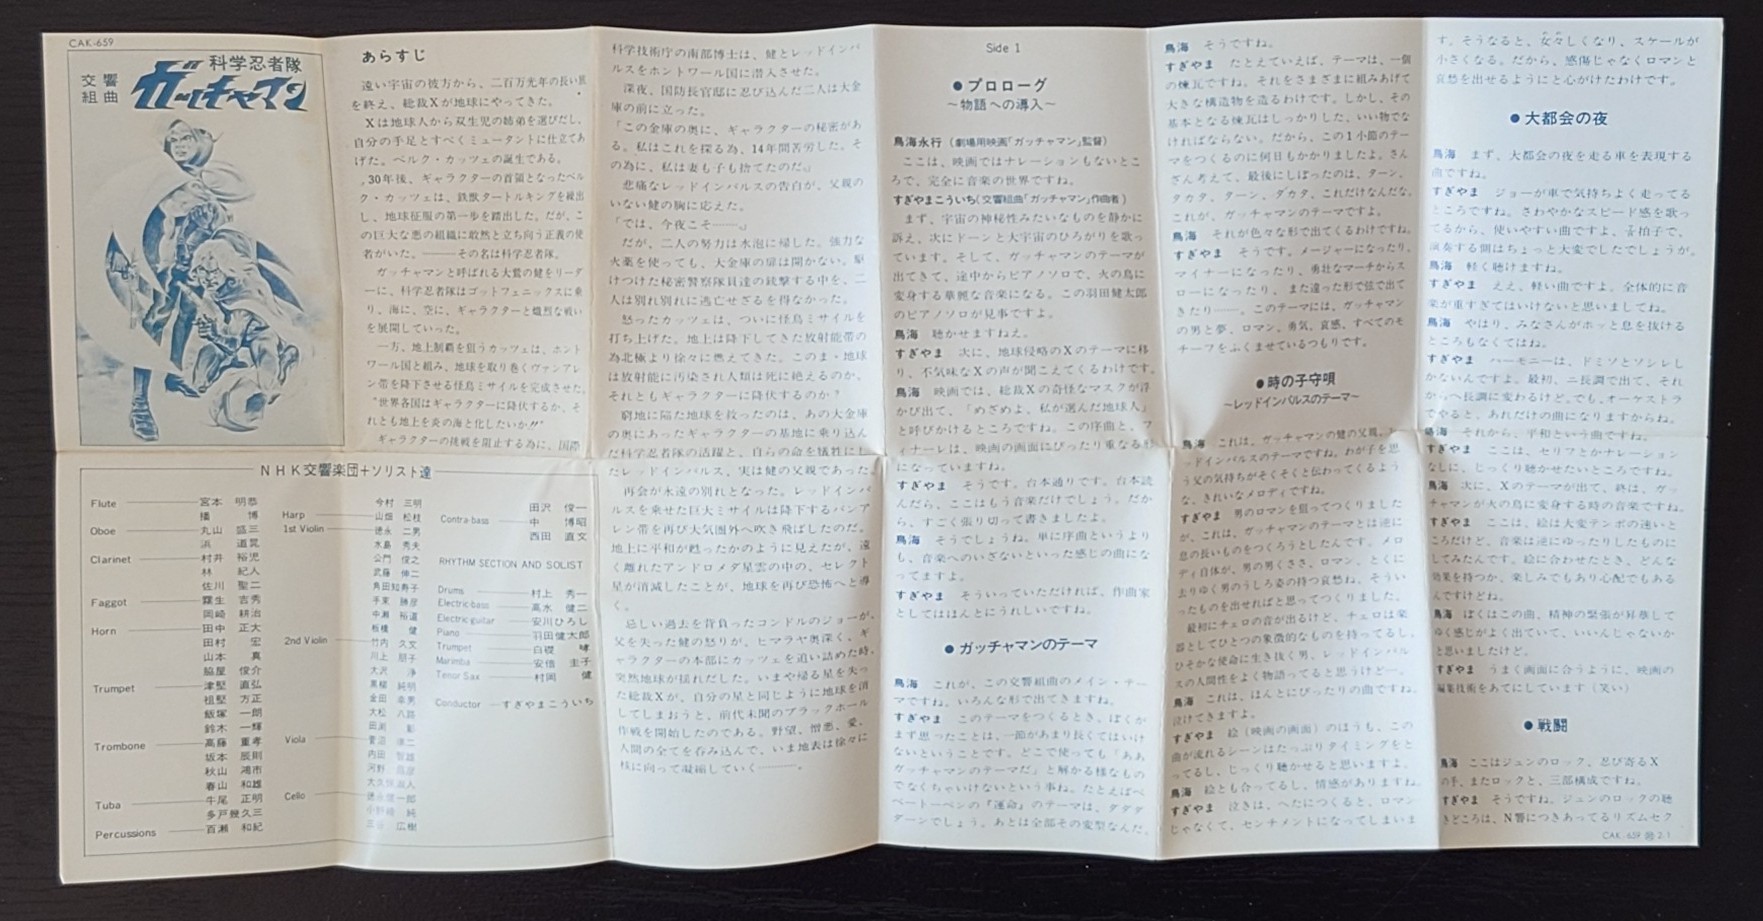 CAK-659
交響
組曲
科学忍者隊
ガッチャマン
あらすじ
遠い宇宙の彼方から、二百万光年の長い旅
を終え、総裁Xが地球にやってきた。
Xは地球人から双生児の姉弟を選びだし、
自分の手足とすべくミュータントに仕立てあ
げた。ベルク・カッツェの誕生である。
30年後、ギャラクターの首領となったベル
ク・カッツェは、鉄獣タートルキングを繰出
し、地球征服の第一歩を踏出した。だが、こ
の巨大な悪の組織に敢然と立ち向う正義の使
者がいた。———その名は科学忍者隊。
ガッチャマンと呼ばれる大鷲の健をリーダ
ーに、科学忍者隊はゴットフェニックスに乗
り、海に、空に、ギャラクターと熾烈な戦い
を展開していった。
一方、地上制覇を狙うカッツェは、ホント
ワール国と組み、地球を取り巻くヴァンアレ
ン帯を降下させる怪鳥ミサイルを完成させた。
“世界各国はギャラクターに降伏するか、そ
れとも地上を炎の海と化したいか〃"
ギャラクターの挑戦を阻止する為に、国際
科学技術庁の南部博士は、健とレッドインパ
ルスをホントワール国に潜入させた。
深夜、国防長官邸に忍び込んだ二人は大金
庫の前に立った。
「この金庫の奥に、ギャラクターの秘密があ
る。私はこれを探る為、14年間苦労した。そ
の為に、私は妻も子も捨てたのだ。」
悲痛なレッドインパルスの告白が、父親の
いない健の胸に応えた。
「では、今夜こそ——。」
だが、二人の努力は水泡に帰した。強力な
火薬を使っても、大金庫の扉は開かない。駆
けつけた秘密警察隊員達の銃撃する中を、二
人は別れ別れに逃亡せざるを得なかった。
怒ったカッツェは、ついに怪鳥ミサイルを
打ち上げた。地上は降下してきた放射能帯の
為北極より徐々に燃えてきた。このまゝ地球
は放射能に汚染され人類は死に絶えるのか、
それともギャラクターに降伏するのか?
窮地に陥た地球を救ったのは、あの大金庫
の奥にあったギャラクターの基地に乗り込ん
だ科学忍者隊の活躍と、自らの命を犠牲にし
たレッドインパルス、実は健の父親であった。
再会が永遠の別れとなった。レッドインパ
ルスを乗せた巨大ミサイルは降下するバンア
レン帯を再び大気圏外へ吹き飛ばしたのだ。
地上に平和が甦ったかのように見えたが、遠
く離れたアンドロメダ星雲の中の、セレクト
星が消滅したことが、地球を再び恐怖へと導
く。
忌しい過去を背負ったコンドルのジョーが、
父を失った健の怒りが、ヒマラヤ奥深く、ギ
ャラクターの本部にカッツェを追い詰めた時、
突然地球が揺れだした。いまや帰る星を失っ
た総裁Xが、自分の星と同じように地球を消
してしまおうと、前代未聞のブラックホール
作戦を開始したのである。野望、憎悪、愛、
人間の全てを呑み込んで、いま地表は徐々に
核に向って凝縮していく———。
NHK交響楽団+ソリスト達
Flute 宮本 明恭
播 博
Oboe 丸山 盛三
浜 道晃
Clarinet 村井 裕児
林 紀人
佐川 聖二
Faggot 霧生 吉秀
岡崎 耕治
Horn 田中 正大
田村 宏
山本 真
脇屋 俊介
Trumpet 津堅 直弘
祖堅 方正
飯塚 一朗
鈴木 一輝
Trombone 高藤 重孝
坂本 辰則
秋山 鴻市
春山 和雄
Tuba 牛尾 正明
多戸幾久三
Percussions 百瀬 和紀
今村 三明
Harp 山畑 松枝
1st Violin 徳永 二男
水島 秀夫
公門 俊之
武藤 伸二
角田知寿子
平来 勝彦
中瀬 裕道
板橋 健
2nd Violin 竹内 久文
川上 朋子
大沢 浄
黒柳 純明
金田 幸男
大松 八路
田渕 彰
Viola 菅沼 準二
内田 智雄
河野 昌彦
大久保淑人
Cello 徳永健一郎
小野崎 純
三谷 広樹
田沢 俊一
Contra-bass 中 博昭
西田 直文
RHYTHM SECTION AND SOLIST
Drums 村上 秀一
Electric-bass 高水 健二
Electric guitar 安川ひろし
Piano 羽田健太郎
Trumpet 白磯 哮
Marimba 安倍 圭子
Tenor Sax 村岡 健
Conductor すぎやまこういち
Side 1
●プロローグ
〜物語への導入〜
鳥海永行(劇場用映画「ガッチャマン」監督)
ここは、映画ではナレーションもないとこ
ろで、完全に音楽の世界ですね。
すぎやまこういち(交響組曲「ガッチャマン」作曲者)
まず、宇宙の神秘性みたいなものを静かに
訴え、次にドーンと大宇宙のひろがりを歌っ
ています。そして、ガッチャマンのテーマが
出てきて、途中からピアノソロで、火の鳥に
変身する華麗な音楽になる。この羽田健太郎
のピアノソロが見事ですよ。
鳥海 聴かせますねえ。
すぎやま 次に、地球侵略のXのテーマに移
り、不気味なXの声が聞こえてくるわけです。
鳥海 映画では、総裁Xの奇怪なマスクが浮
かび出て、「めざめよ、私が選んだ地球人」
と呼びかけるところですね。この序曲と、フ
ィナーレは、映画の画面にぴったり重なる形
になっていますね。
すぎやま そうです。台本通りです。台本読
んだら、ここはもう音楽だけでしょう。だか
ら、すごく張り切って書きましたよ。
鳥海 そうでしょうね。単に序曲というより
も、音楽へのいざないといった感じの曲にな
ってますよ。
すぎやま そういっていただければ、作曲家
としてはほんとにうれしいですね。
●ガッチャマンのテーマ
鳥海 これが、この交響組曲のメイン・テー
マですね。いろんな形で出てきますね。
すぎやま このテーマをつくるとき、ぼくが
まず思ったことは、一節があまり長くてはいけ
ないということです。どこで使っても「ああ
ガッチャマンのテーマだ」と解かる様なもの
でなくちゃいけないという事ね。たとえばベ
ートーベンの『運命』のテーマは、ダダダ
ダーンでしょう。あとは全部その変型なんだ。
鳥海 そうですね。
すぎやま たとえていえば、テーマは、一個
の煉瓦ですね。それをさまざまに組みあげて
大きな構造物を造るわけです。しかし、その
基本となる煉瓦はしっかりした、いい物でな
ければならない。だから、この1小節のテー
マをつくるのに何日もかかりましたよ。さん
ざん考えて、最後にしぼったのは、ターン、
タカタ、ターン、ダカタ、これだけなんだな。
これが、ガッチャマンのテーマですよ。
鳥海 それが色々な形で出てくるわけですね。
すぎやま そうです。メージャーになったり、
マイナーになったり、勇壮なマーチからス
ローになったり、また違った形で弦で出て
きたり——。このテーマには、ガッチャマン
の男と夢、ロマン、勇気、哀感、すべてのモ
チーフをふくませているつもりです。
●時の子守唄
〜レッドインパルスのテーマ〜
鳥海 これは、ガッチャマンの健の父親、レ
ッドインパルスのテーマですね。わが子を思
う父の気持ちがそくそくと伝わってくるよう
な、きれいなメロディですね。
すぎやま 男のロマンを狙ってつくりました
が、これは、ガッチャマンのテーマとは逆に
息の長いものをつくろうとしたんです。メロ
ディ自体が、男の男くささ、ロマン、とくに
去りゆく男のうしろ姿の持つ哀愁ね、そうい
ったものを出せればと思ってつくりました。
最初にチェロの音が出るけど、チェロは楽
器としてひとつの象徴的なものを持ってるし、
ひそかな使命に生き抜く男、レッドインパル
スの人間性をよく物語ってると思うけど—。
鳥海 これは、ほんとにぴったりの曲ですね。
泣けてきますよ。
すぎやま 絵(映画の画面)のほうも、この
曲が流れるシーンはたっぷりタイミングをと
ってるし、じっくり聴かせると思いますよ。
鳥海 絵とも合ってるし、情感がありますね。
すぎやま 泣きは、へたにつくると、ロマン
じゃなくて、センチメントになってしまいま
す。そうなると、女々しくなり、スケールが
小さくなる。だから、感傷じゃなくロマンと
哀愁を出せるようにと心がけたわけです。
●大都会の夜
鳥海 まず、大都会の夜を走る車を表現する
曲ですね。
すぎやま ジョーが車で気持ちよく走ってる
ところですね。さわやかなスピード感を歌っ
てるから、使いやすい曲ですよ、5/4拍子で、
演奏する側はちょっと大変でしたでしょうが。
鳥海 軽く聴けますね。
すぎやま ええ、軽い曲ですよ。全体的に音
楽が重すぎてはいけないと思いましてね。
鳥海 やはり、みなさんがホッと息を抜ける
ところもなくてはね。
すぎやま ハーモニーは、ドミソとソシレし
かないんですよ。最初、ニ長調で出て、それ
からヘ長調に変わるけど。でも、オーケストラ
でやると、あれだけの曲になりますからね。
鳥海 それから、平和という曲ですね。
すぎやま ここは、セリフとかナレーション
なしに、じっくり聴かせたいところですね。
鳥海 次に、Xのテーマが出て、終は、ガッ
チャマンが火の鳥に変身する時の音楽ですね。
すぎやま ここは、絵は大変テンポの速いと
ころだけど、音楽は逆にゆったりしたものに
してみたんです。絵に合わせたとき、どんな
効果を持つか、楽しみでもあり心配でもある
んですけどね。
鳥海 ぼくはこの曲、精神の緊張が昇華して
ゆく感じがよく出ていて、いいんじゃないか
と思いましたけど。
すぎやま うまく画面に合うように、映画の
編集技術をあてにしています(笑い)
●戦闘
鳥海 ここはジュンのロック、忍び寄るX
の手、またロックと、三部構成ですね。
すぎやま そうですね。ジュンのロックの聴
きどころは、N響につきあってるリズムセク
CAK-659 ㊢ 2-1